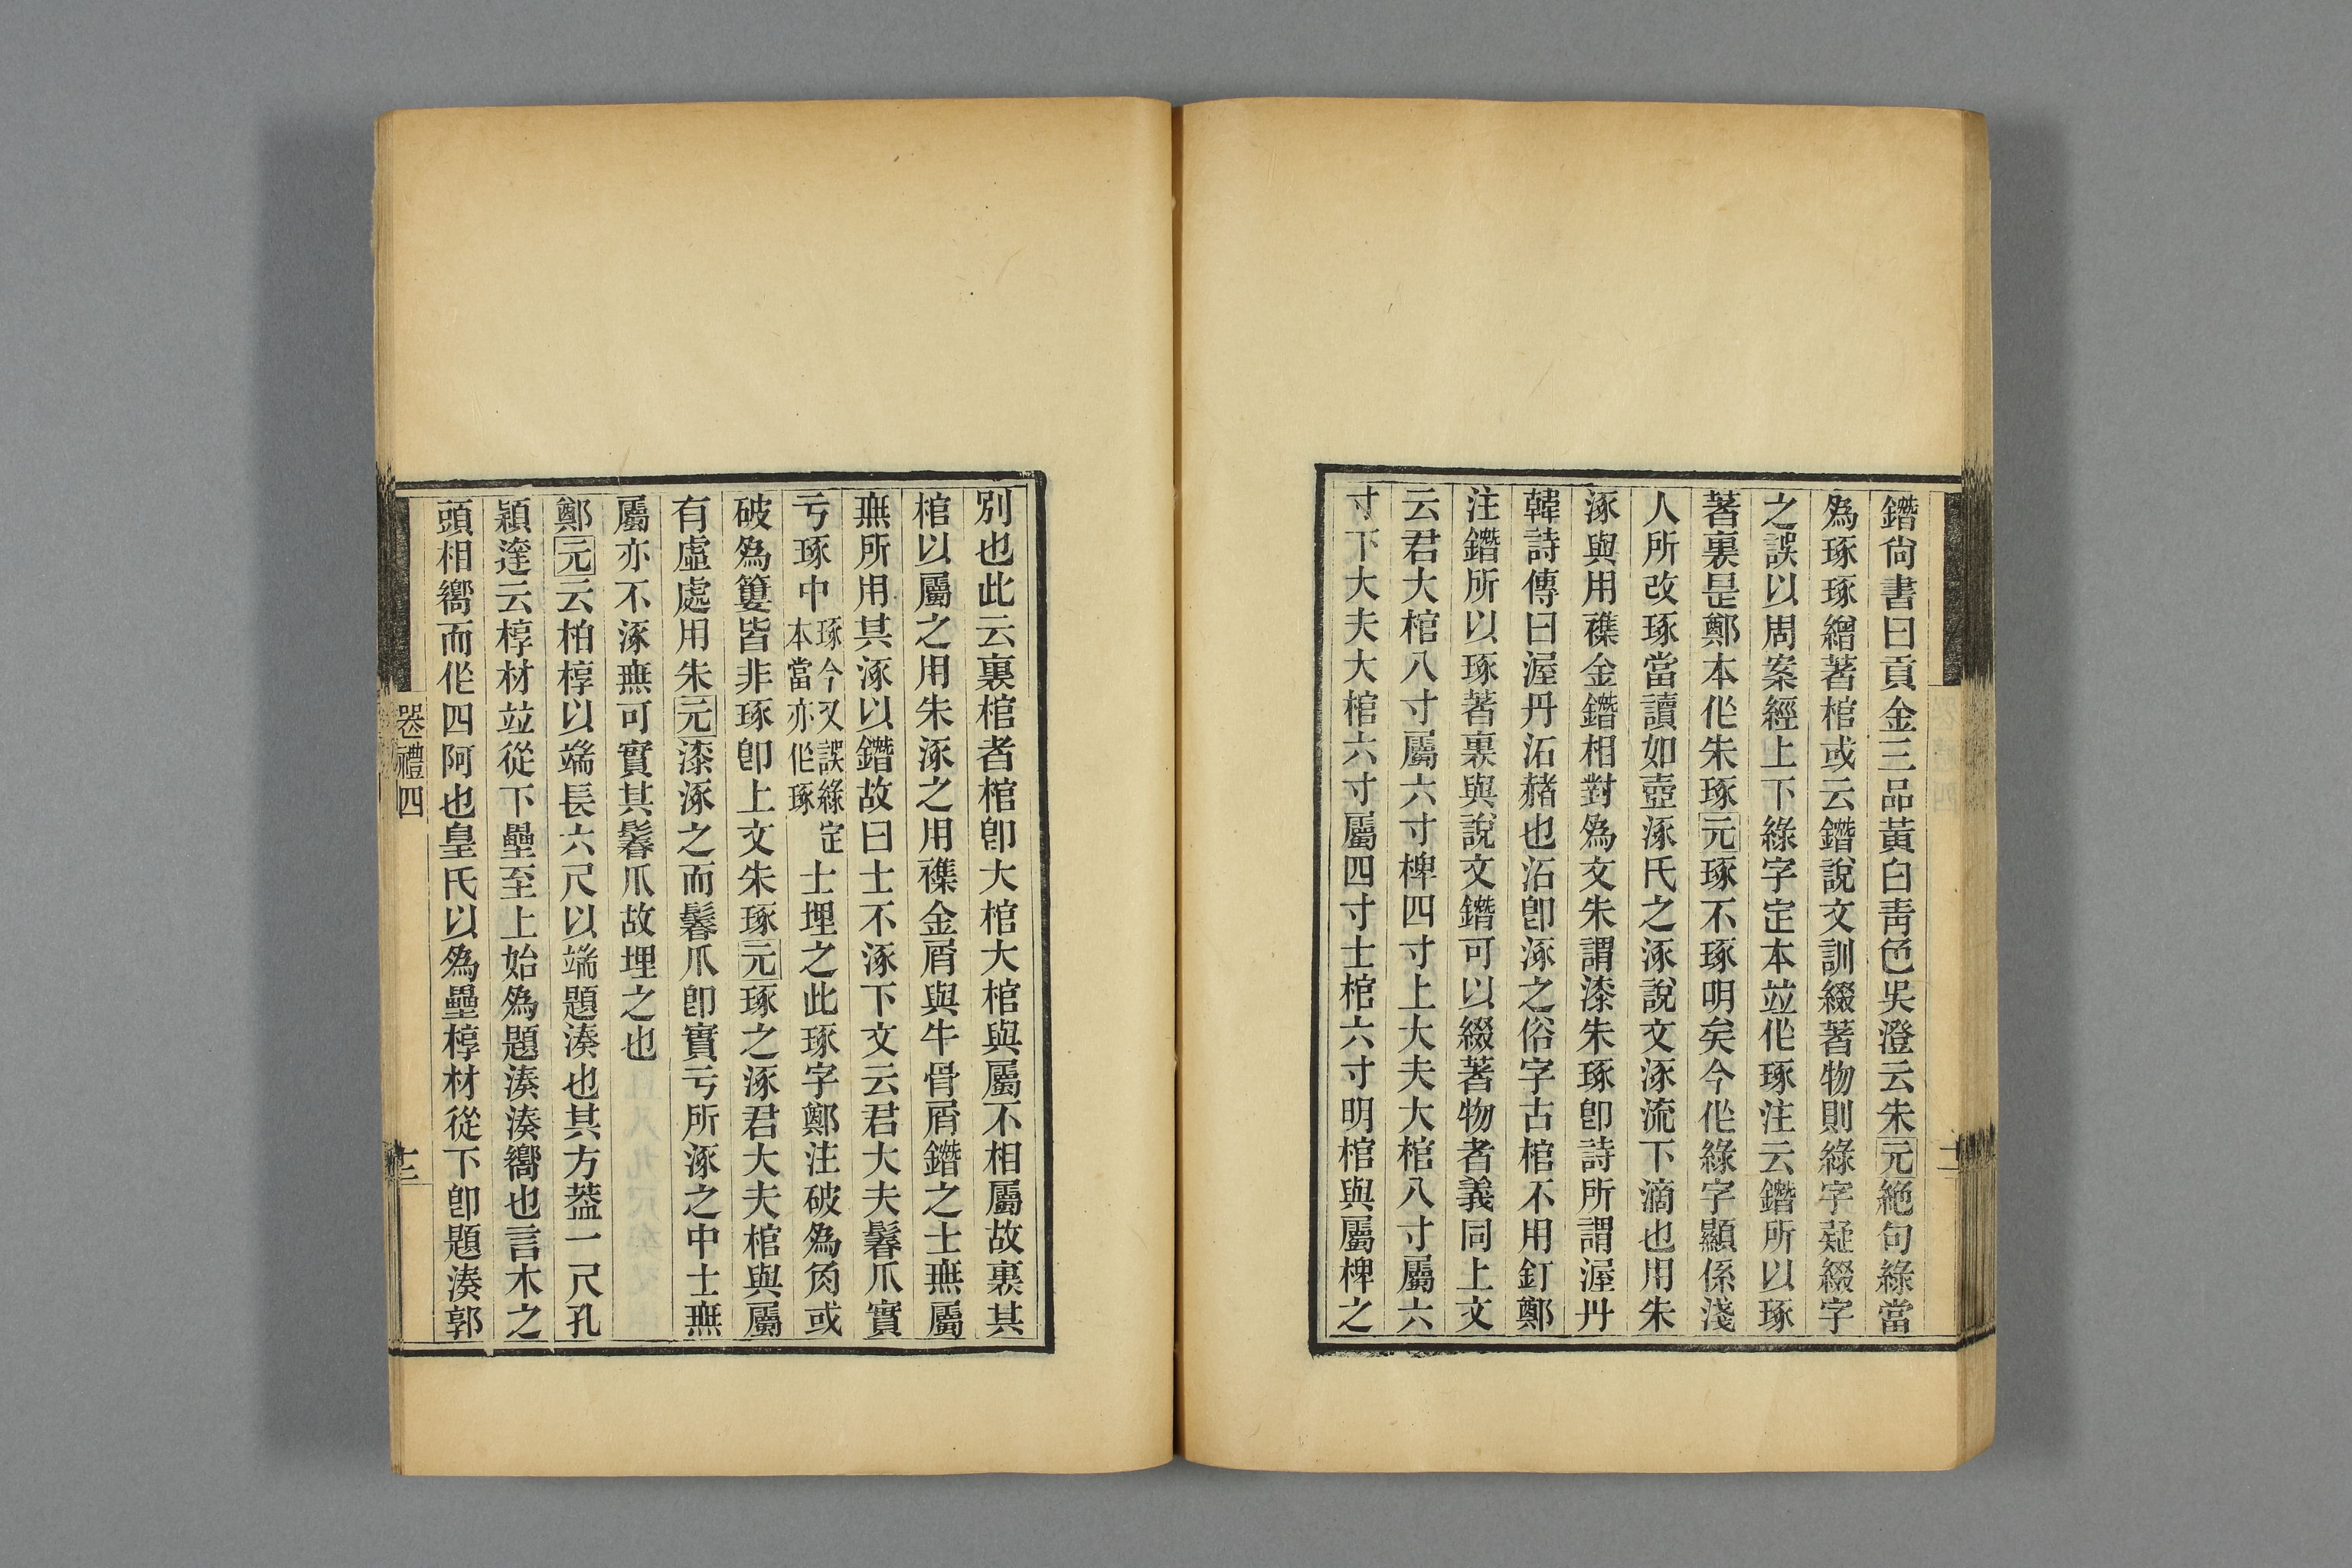 鐕尙書曰貢金三品黃白靑色吳澄云朱元絶句綠當
爲琢琢繒著棺或云鐕說文訓綴著物則綠字疑綴字
之誤以周案經上下綠字定本並作琢注云鐕所以琢
著裏是鄭本作朱琢元琢不琢明矣今作綠字顯係淺
人所改琢當讀如壺涿氏之涿說文涿流下滴也用朱
涿與用襍金鐕相對爲文朱謂漆朱琢卽詩所謂渥丹
韓詩傳曰渥丹沰赭也沰卽涿之俗字古棺不用釘鄭
注鐕所以琢著裏與說文鐕可以綴著物者義同上文
云君大棺八寸屬六寸椑四寸上大夫大棺八寸屬六
寸下大夫大棺六寸屬四寸士棺六寸明棺與屬椑之
別也此云裏棺者棺卽大棺大棺與屬不相屬故裏其
棺以屬之用朱涿之用襍金屑與牛骨屑鐕之士無屬
無所用其涿以鐕故曰士不涿下文云君大夫鬊爪實
亏琢中琢今又誤綠定本當亦作琢士埋之此琢字鄭注破爲角或
破爲簍皆非琢卽上文朱琢元琢之涿君大夫棺與屬
有虛處用朱元漆涿之而鬊爪卽實亏所涿之中士無
屬亦不涿無可實其鬊爪故埋之也
鄭元云柏椁以端長六尺以端題湊也其方葢一尺孔
穎達云椁材並從下壘至上始爲題湊湊嚮也言木之
頭相嚮而作四阿也皇氏以爲壘椁材從下卽題湊郭
卷禮四
十二